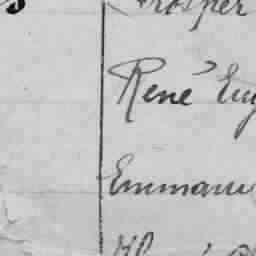 Prosper
René Eug
Emmanu